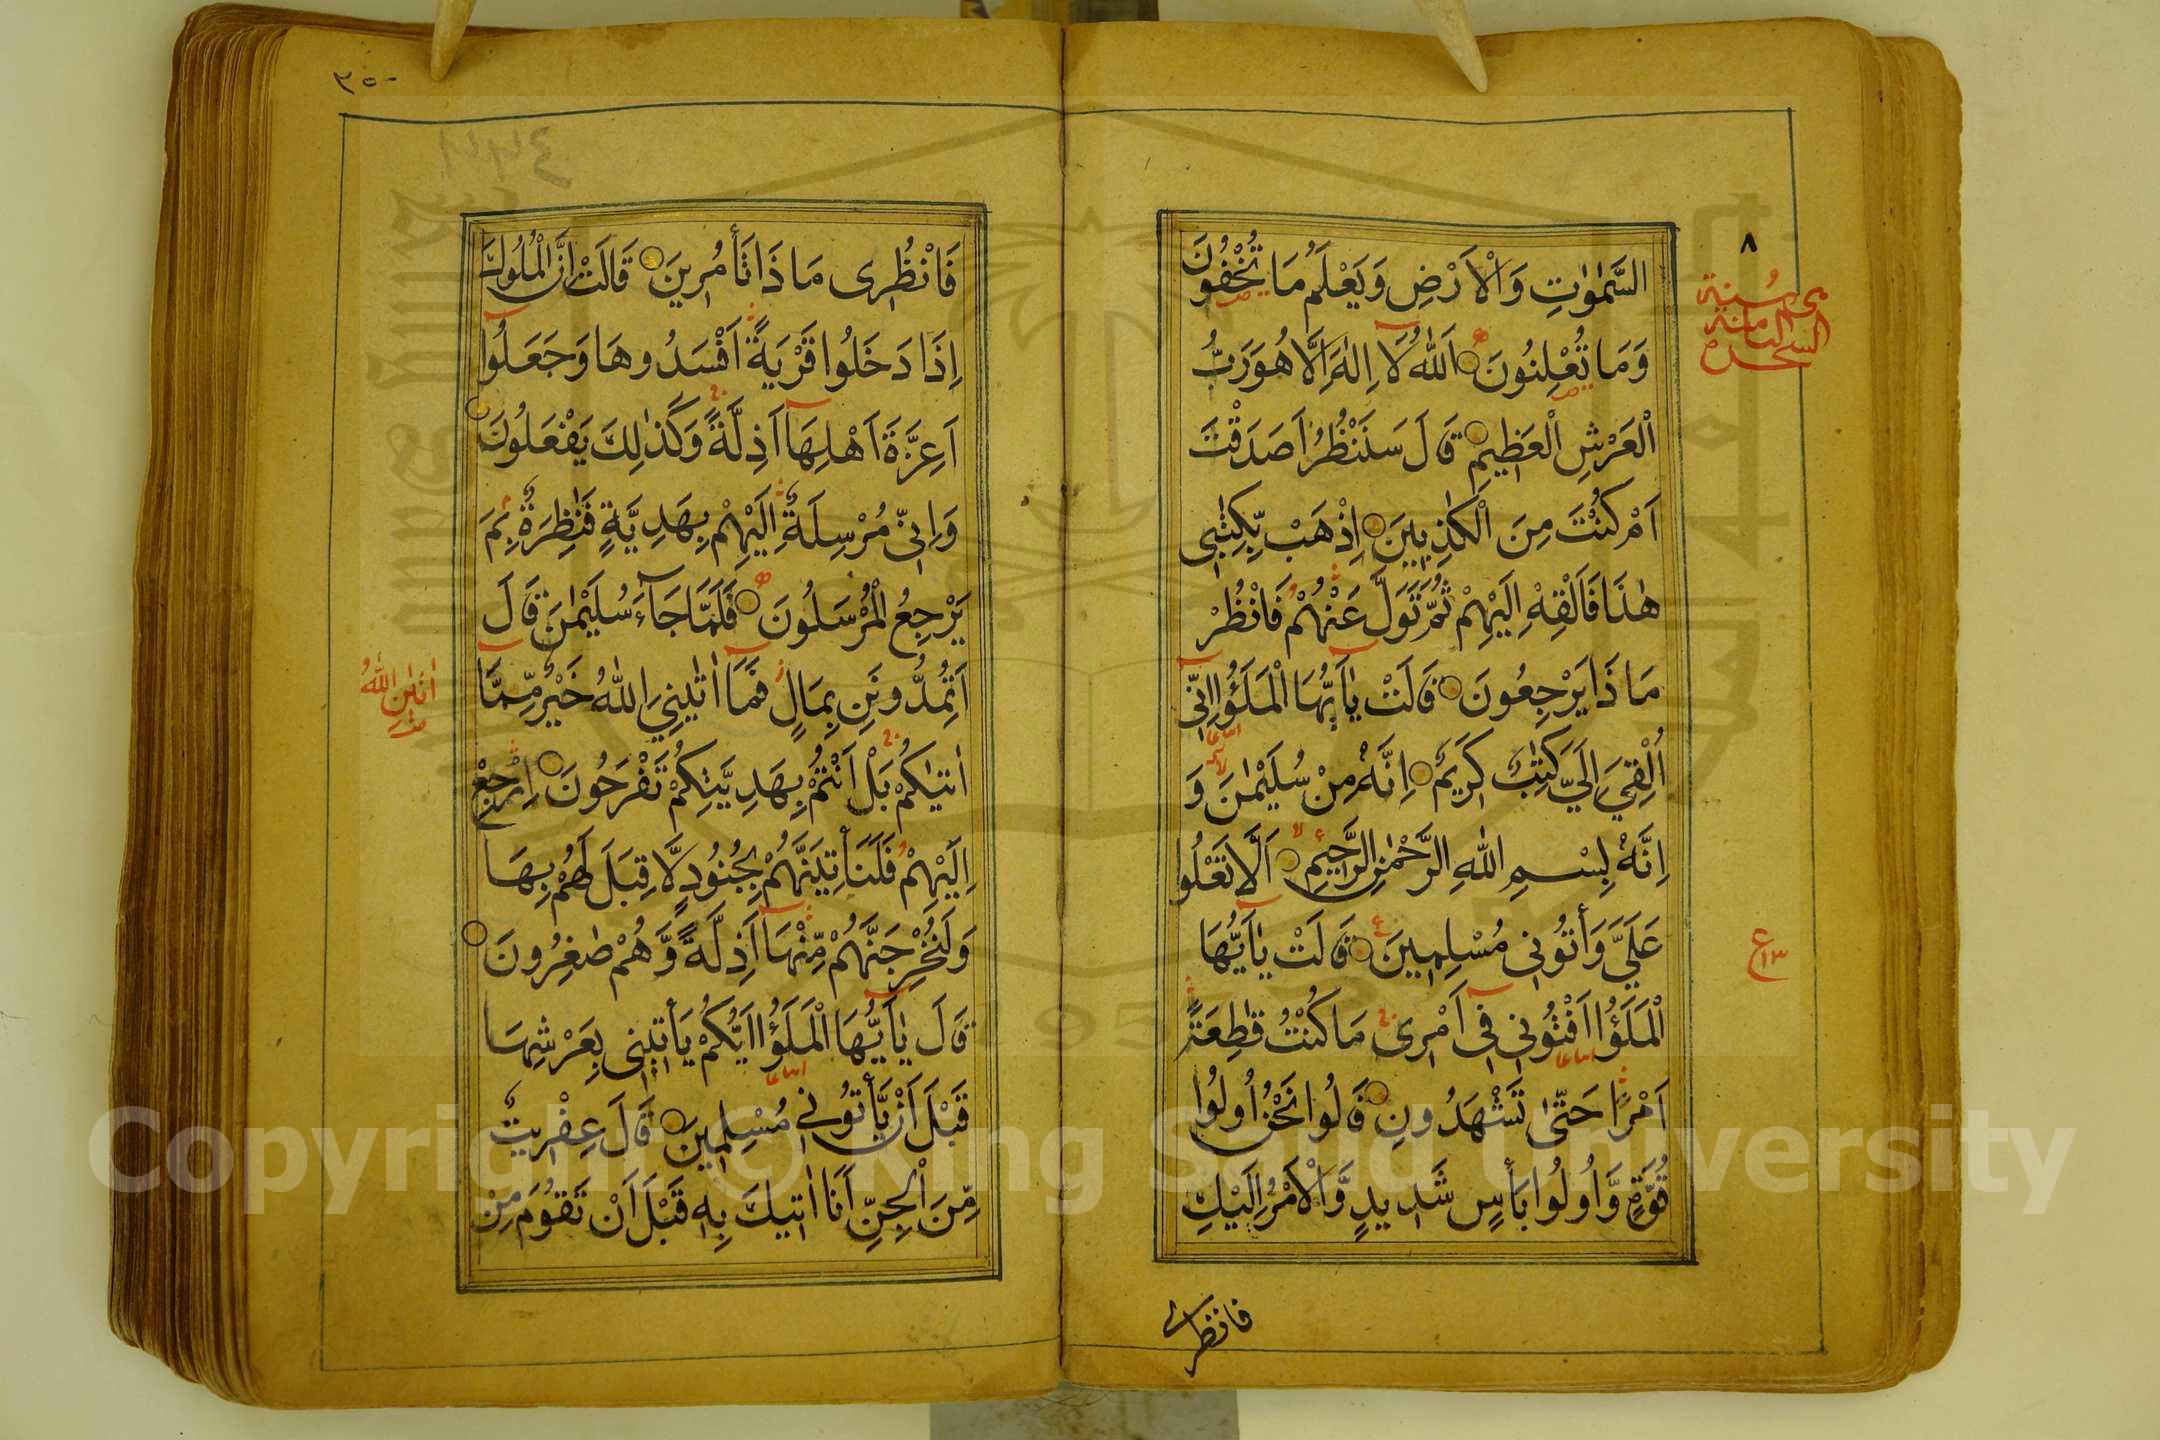 ٨
السَّمٰوٰتِ وَالْاَرْضِ وَيَعْلَمُ مَا تُخْفُونَ
وَمَا تُعْلِنُونَ اَللّٰهُ لَا اِلٰهَ اِلَّا هُوَ رَبُّ
الْعَرْشِ الْعَظِيمِ قَالَ سَنَنْظُرُ اَصَدَقْتَ
اَمْ كُنْتَ مِنَ الْكٰذِبِينَ اِذْهَبْ بِّكِتٰبِى
هٰذَا فَاَلْقِهْ اِلَيْهِمْ ثُمَّ تَوَلَّ عَنْهُمْ فَانْظُرْ
مَاذَا يَرْجِعُونَ قَالَتْ يٰاَيُّهَا الْمَلَؤُا اِنِّى
اُلْقِىَ اِلَىَّ كِتٰبٌ كَرِيمٌ اِنَّهُ مِنْ سُلَيْمٰنَ وَ
اِنَّهُ بِسْمِ اللّٰهِ الرَّحْمٰنِ الرَّحِيمِ اَلَّا تَعْلُوا
عَلَىَّ وَأْتُونِى مُسْلِمِينَ قَالَتْ يٰاَيُّهَا
الْمَلَؤُا اَفْتُونِى فِى اَمْرِى مَا كُنْتُ قَاطِعَةً
اَمْرًا حَتّٰى تَشْهَدُونِ قَالُوا نَحْنُ اُولُوا
قُوَّةٍ وَّاُولُوا بَأْسٍ شَدِيدٍ وَّالْاَمْرُ اِلَيْكِ
ع ١٣
فانظرى
٣٥٠
فَانْظُرِى مَاذَا تَأْمُرِينَ قَالَتْ اِنَّ الْمُلُوكَ
اِذَا دَخَلُوا قَرْيَةً اَفْسَدُوهَا وَجَعَلُوا
اَعِزَّةَ اَهْلِهَا اَذِلَّةً وَكَذٰلِكَ يَفْعَلُونَ
وَاِنِّى مُرْسِلَةٌ اِلَيْهِمْ بِهَدِيَّةٍ فَنٰظِرَةٌ بِمَ
يَرْجِعُ الْمُرْسَلُونَ فَلَمَّا جَآءَ سُلَيْمٰنَ قَالَ
اَتُمِدُّونَنِ بِمَالٍ فَمَا اٰتٰينِىَ اللّٰهُ خَيْرٌ مِّمَّا
اٰتٰيكُمْ بَلْ اَنْتُمْ بِهَدِيَّتِكُمْ تَفْرَحُونَ اِرْجِعْ
اِلَيْهِمْ فَلَنَأْتِيَنَّهُمْ بِجُنُودٍ لَّا قِبَلَ لَهُمْ بِهَا
وَلَنُخْرِجَنَّهُمْ مِّنْهَا اَذِلَّةً وَّهُمْ صٰغِرُونَ
قَالَ يٰاَيُّهَا الْمَلَؤُا اَيُّكُمْ يَأْتِينِى بِعَرْشِهَا
قَبْلَ اَنْ يَّأْتُونِى مُسْلِمِينَ قَالَ عِفْرِيتٌ
مِّنَ الْجِنِّ اَنَا اٰتِيكَ بِهِ قَبْلَ اَنْ تَقُومَ مِنْ
Copyright © King Saud University